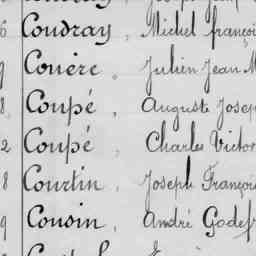 6 Coudray, Michel françoi
9 Couëre, Julien Jean M
8 Coupé, Auguste Josep
2 Coupé, Charles Victor
8 Courtin, Joseph François
9 Cousin, André Godefr